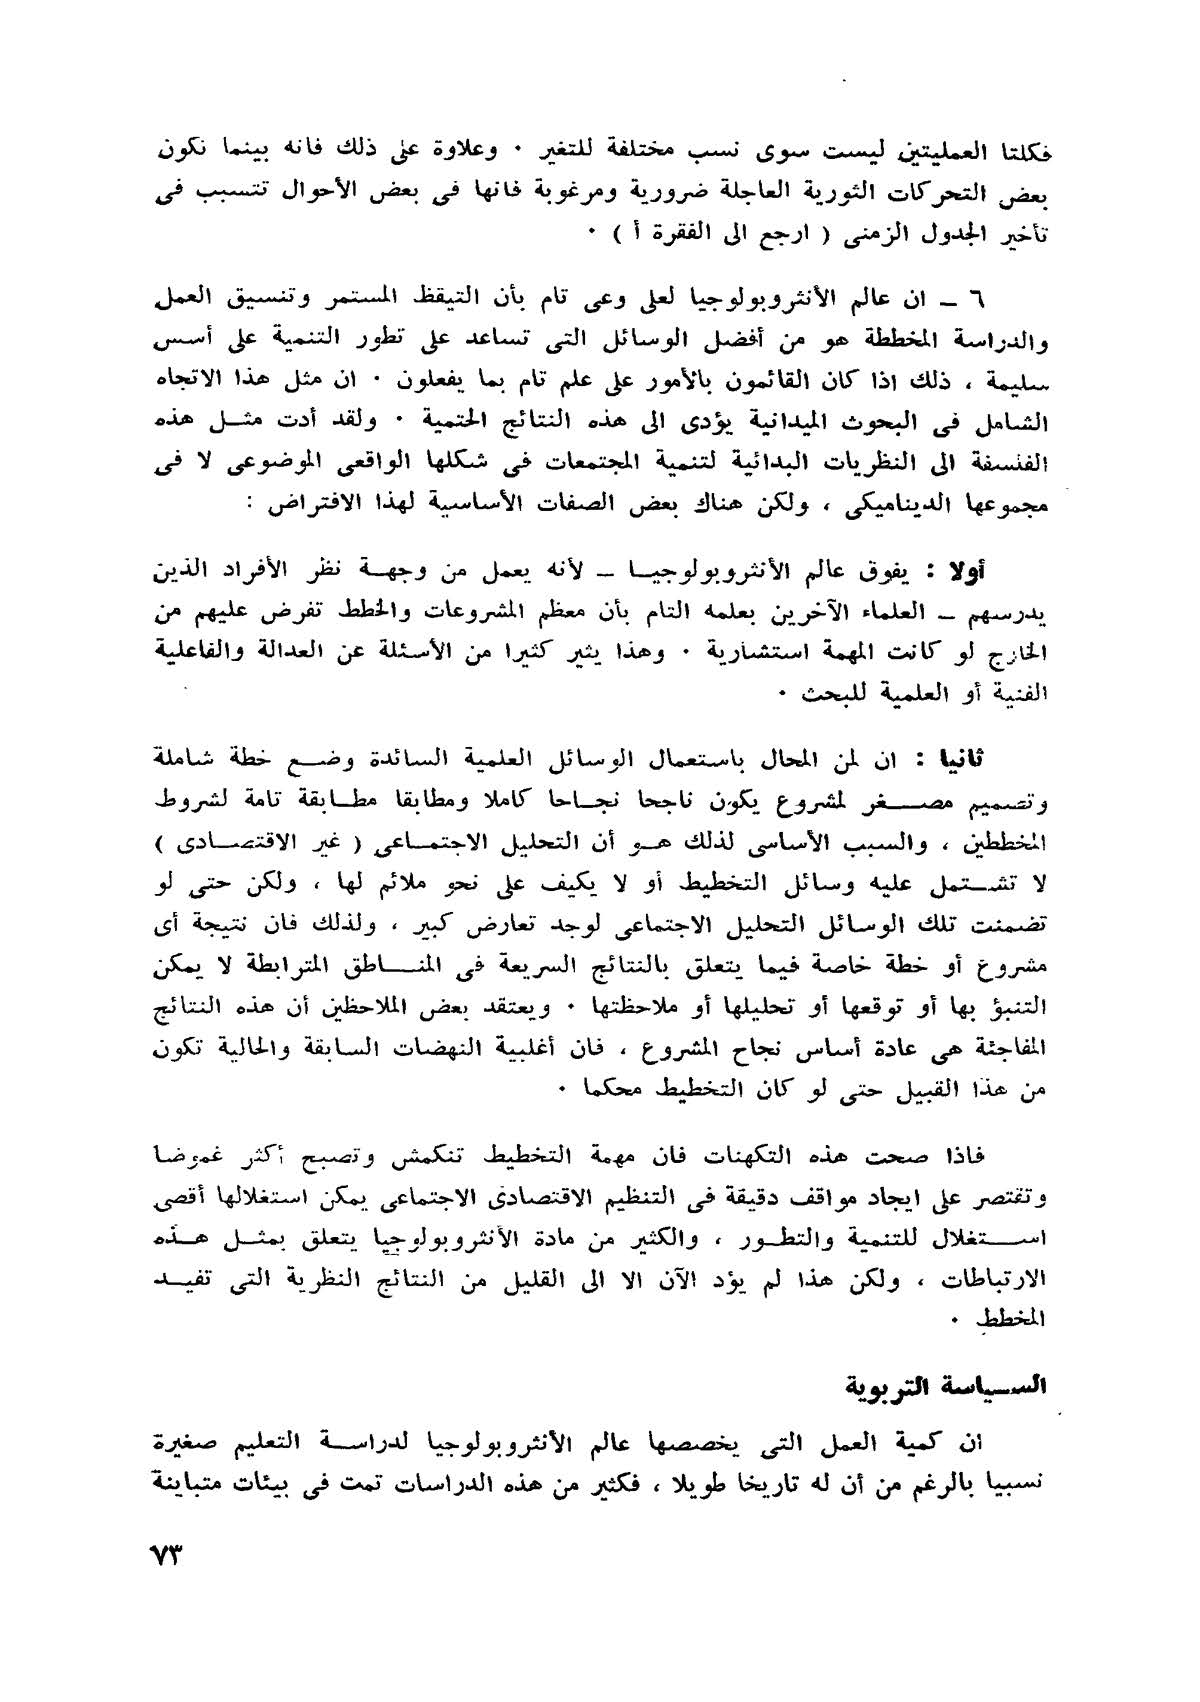 فكلتا العمليتين ليست سوى نسب مختلفة للتغير · وعلاوة على ذلك فانه بينما نكون
بعض التحركات الثورية العاجلة ضرورية ومرغوبة فانها فى بعض الأحوال تتسبب فى
تأخير الجدول الزمنى ( ارجع الى الفقرة أ ) ·
٦ ــ ان عالم الأنثروبولوجيا لعلى وعى تام بأن التيقظ المستمر وتنسيق العمل
والدراسة المخططة هو من أفضل الوسائل التى تساعد على تطور التنمية على أسس
سليمة ، ذلك اذا كان القائمون بالأمور على علم تام بما يفعلون · ان مثل هذا الاتجاه
الشامل فى البحوث الميدانية يؤدى الى هذه النتائج الحتمية · ولقد أدت مثــل هذه
الفلسفة الى النظريات البدائية لتنمية المجتمعات فى شكلها الواقعى الموضوعى لا فى
مجموعها الديناميكى ، ولكن هناك بعض الصفات الأساسية لهذا الافتراض :
أولا : يفوق عالم الأنثروبولوجيــا ــ لأنه يعمل من وجهــة نظر الأفراد الذين
يدرسهم ــ العلماء الآخرين بعلمه التام بأن معظم المشروعات والخطط تفرض عليهم من
الخارج لو كانت المهمة استشارية · وهذا يثير كثيرا من الأسئلة عن العدالة والفاعلية
الفنية أو العلمية للبحث ·
ثانيا : ان لمن المحال باستعمال الوسائل العلمية السائدة وضــع خطة شاملة
وتصميم مصــــغر لمشروع يكون ناجحا نجــاحا كاملا ومطابقا مطــابقة تامة لشروط
المخططين ، والسبب الأساسى لذلك هــو أن التحليل الاجتمــاعى ( غير الاقتصــادى )
لا تشــتمل عليه وسائل التخطيط أو لا يكيف على نحو ملائم لها ، ولكن حتى لو
تضمنت تلك الوسائل التحليل الاجتماعى لوجد تعارض كبير ، ولذلك فان نتيجة أى
مشروع أو خطة خاصة فيما يتعلق بالنتائج السريعة فى المنــــاطق المترابطة لا يمكن
التنبؤ بها أو توقعها أو تحليلها أو ملاحظتها · ويعتقد بعض الملاحظين أن هذه النتائج
المفاجئة هى عادة أساس نجاح المشروع ، فان أغلبية النهضات السابقة والحالية تكون
من هذا القبيل حتى لو كان التخطيط محكما ·
فاذا صحت هذه التكهنات فان مهمة التخطيط تنكمش وتصبح أكثر غموضا
وتقتصر على ايجاد مواقف دقيقة فى التنظيم الاقتصادى الاجتماعى يمكن استغلالها أقصى
اســـتغلال للتنمية والتطــور ، والكثير من مادة الأنثروبولوجيا يتعلق بمثــل هــذه
الارتباطات ، ولكن هذا لم يؤد الآن الا الى القليل من النتائج النظرية التى تفيــد
المخطط ·
الســياسة التربوية
ان كمية العمل التى يخصصها عالم الأنثروبولوجيا لدراســة التعليم صغيرة
نسبيا بالرغم من أن له تاريخا طويلا ، فكثير من هذه الدراسات تمت فى بيئات متباينة
٧٣